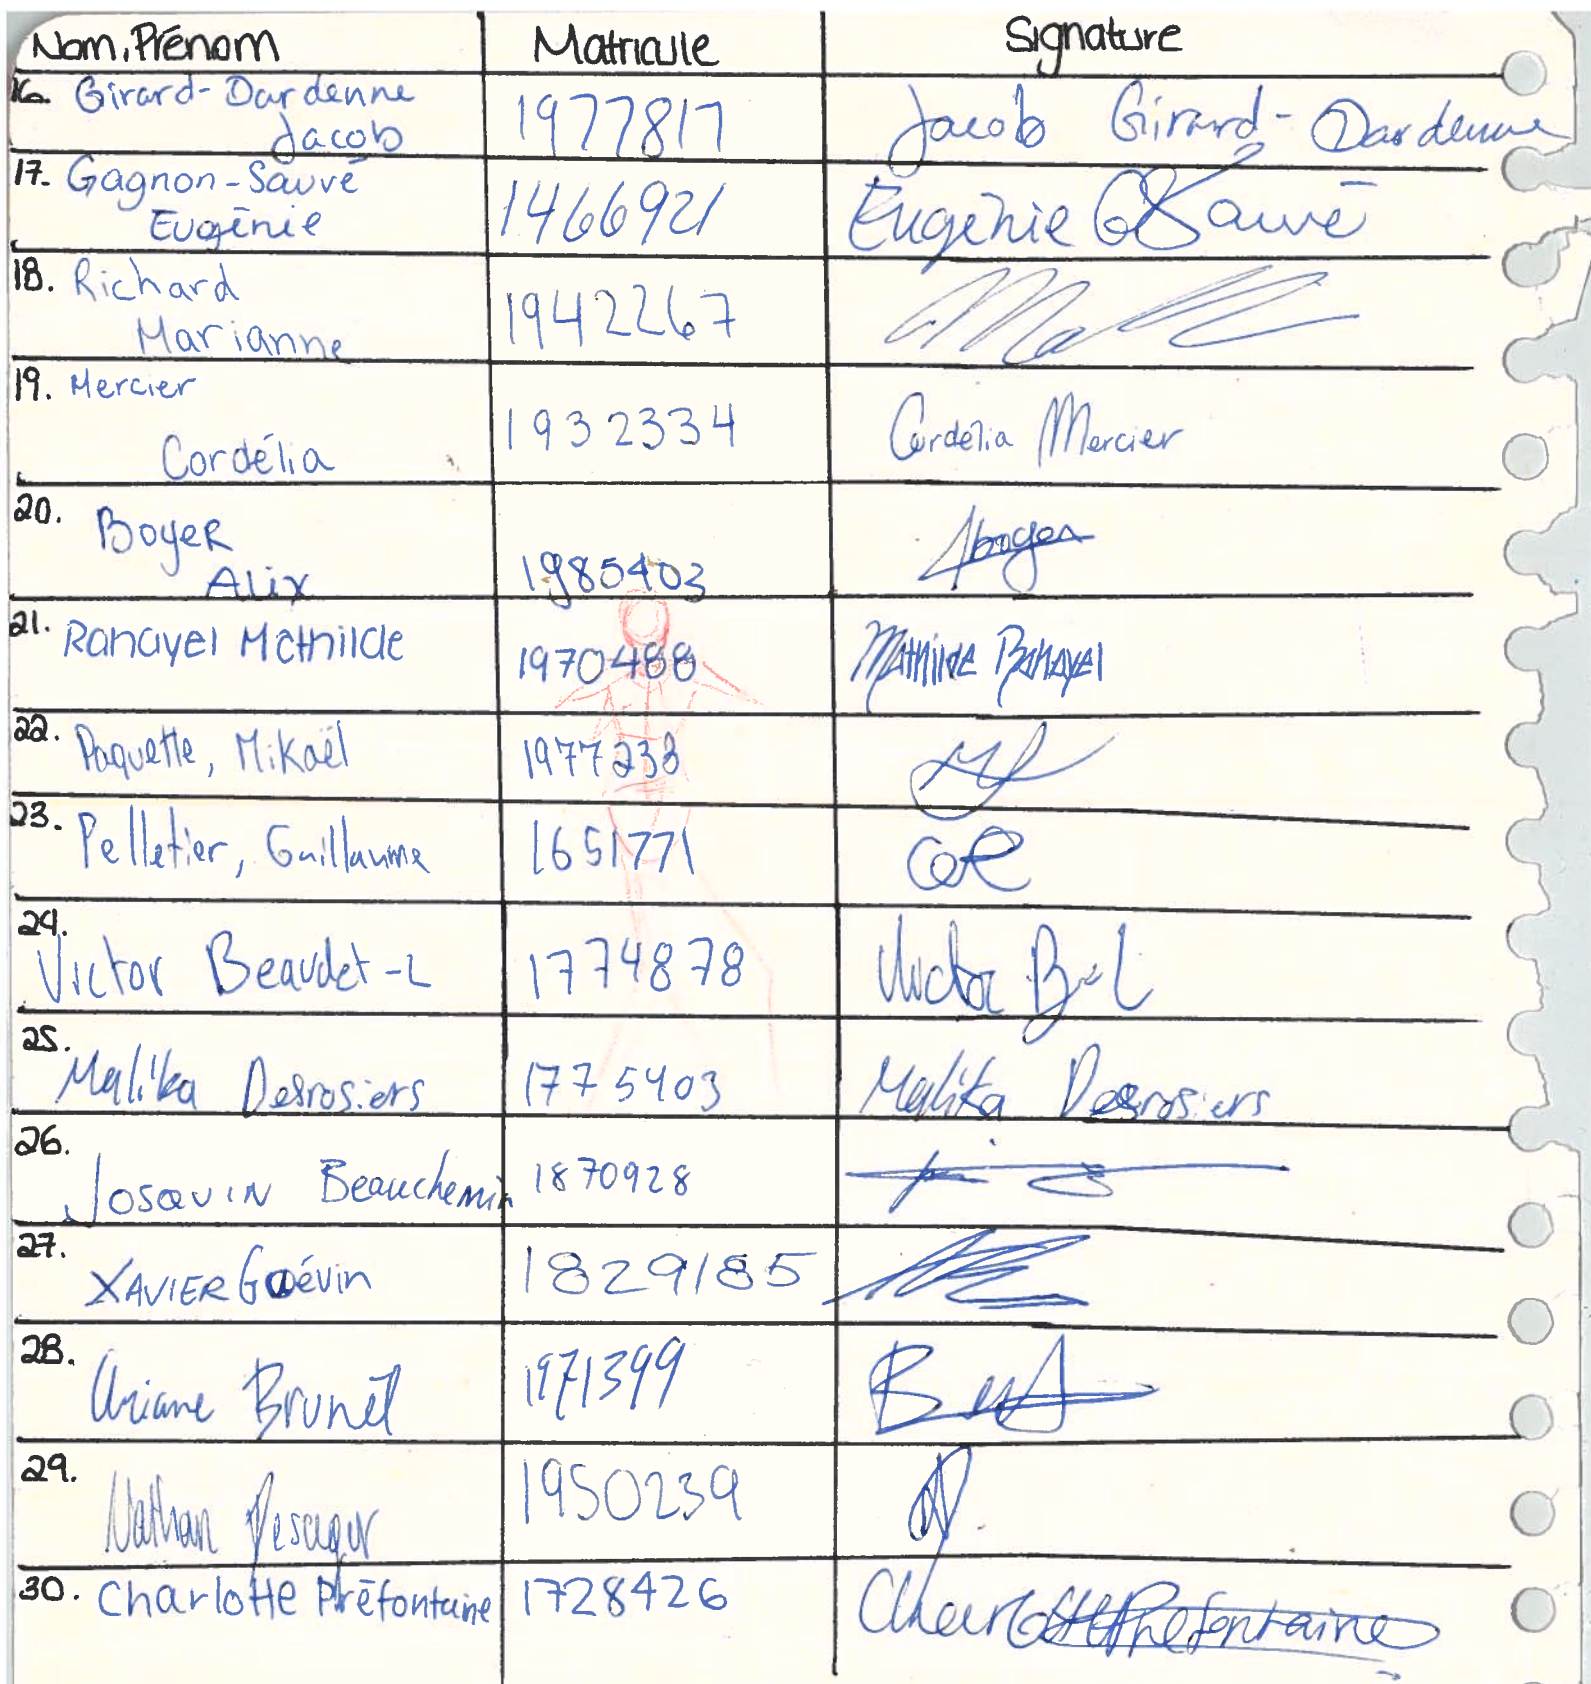 Nom, Prénom Matricule Signature
16. Girard-Dardenne
Jacob 1977817 Jacob Girard-Dardenne
17. Gagnon-Sauvé
Eugénie 1466921 Eugénie G Sauvé
18. Richard
Marianne 1942267
19. Mercier
Cordélia 1932334 Cordélia Mercier
20. Boyer
Alix 1985403 Aboyer
21. Ranayel Mathilde 1970488 Mathilde Ranayel
22. Paquette, Mikaël 1977233
23. Pelletier, Guillaume 1651771
24. Victor Beaudet-L 1774878 Victor B-L
25. Malika Desrosiers 1775403 Malika Desrosiers
26. Josquin Beauchemin 1870928
27. Xavier Guévin 1829185
28. Ariane Brunet 1971399
29. Nathan 1950239
30. Charlotte Préfontaine 1728426 Charlotte Préfontaine